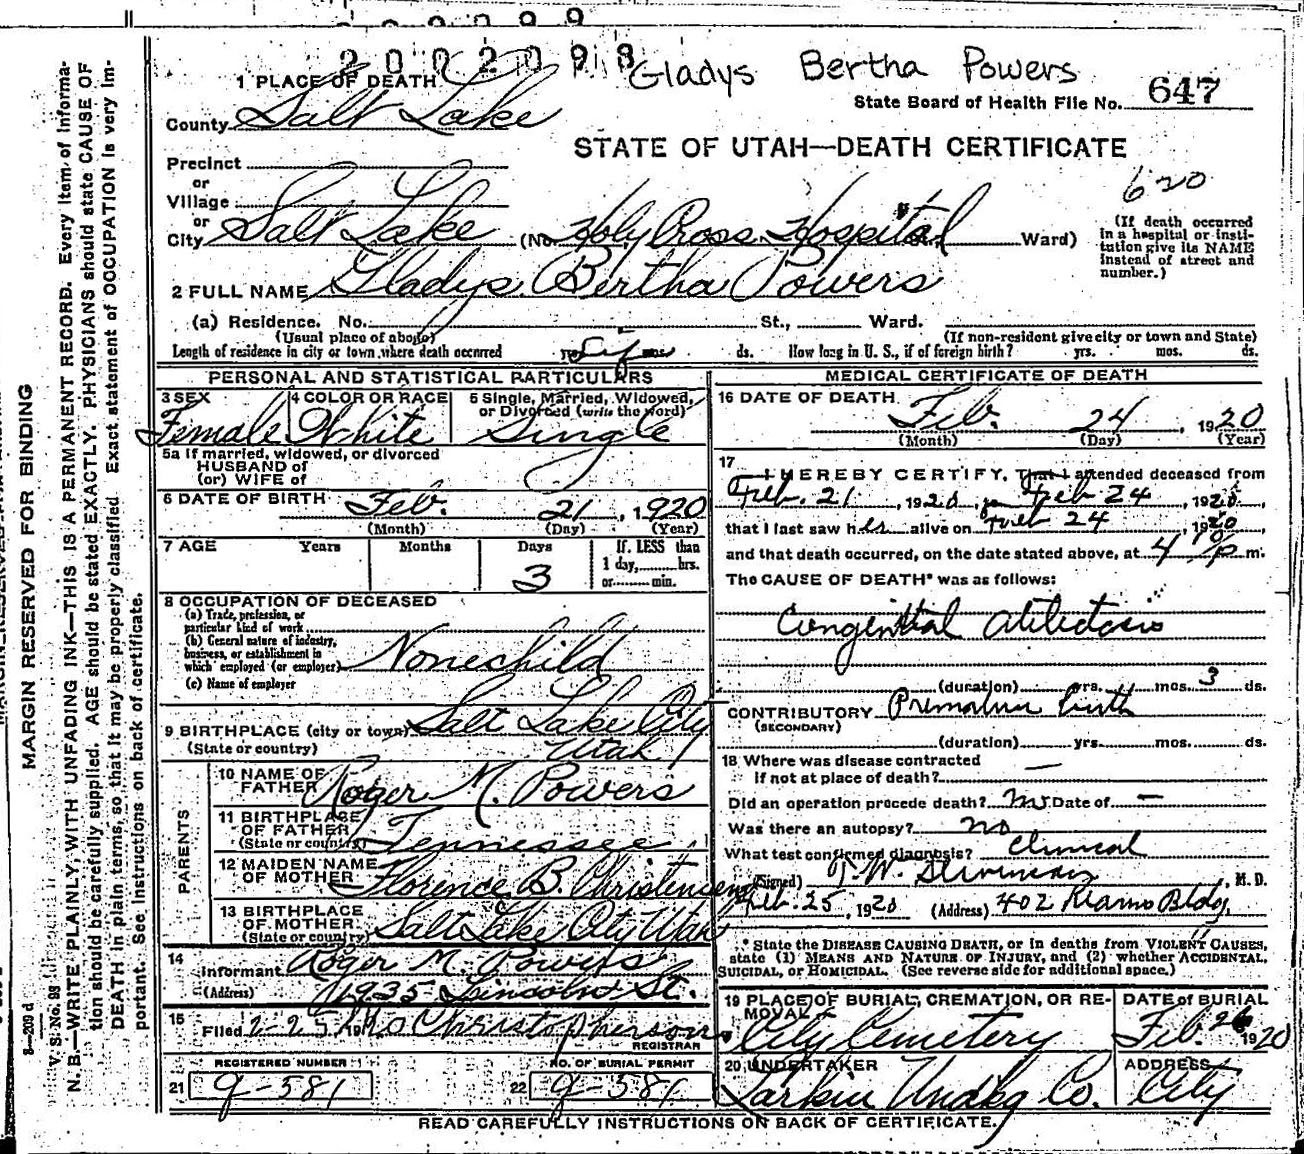 2002098
Gladys Bertha Powers
1 PLACE OF DEATH
State Board of Health File No. 647
County Salt Lake
STATE OF UTAH—DEATH CERTIFICATE
Precinct
or
Village
620
or
City Salt Lake (No. Holy Cross Hospital Ward)
(If death occurred in a hospital or institution give its NAME instead of street and number.)
2 FULL NAME Gladys Bertha Powers
(a) Residence. No. St., Ward.
(Usual place of abode) (If non-resident give city or town and State)
Length of residence in city or town where death occurred yrs. Life mos. ds. How long in U. S., if of foreign birth? yrs. mos. ds.
PERSONAL AND STATISTICAL PARTICULARS
3 SEX Female
4 COLOR OR RACE White
5 Single, Married, Widowed, or Divorced (write the word) Single
5a If married, widowed, or divorced
HUSBAND of
(or) WIFE of
6 DATE OF BIRTH Feb. 21, 1920
(Month) (Day) (Year)
7 AGE Years Months Days 3
If LESS than
1 day, hrs.
or min.
8 OCCUPATION OF DECEASED
(a) Trade, profession, or
particular kind of work
(b) General nature of industry,
business, or establishment in
which employed (or employer) None child
(c) Name of employer
9 BIRTHPLACE (city or town) Salt Lake City
(State or country) Utah
PARENTS
10 NAME OF FATHER Roger M. Powers
11 BIRTHPLACE OF FATHER (State or country) Tennessee
12 MAIDEN NAME OF MOTHER Florence B. Christensen
13 BIRTHPLACE OF MOTHER (State or country) Salt Lake City Utah
14 Informant Roger M. Powers
(Address) 1935 Lincoln St.
15 Filed 2-25 Christopherson
REGISTRAR
REGISTERED NUMBER NO. OF BURIAL PERMIT
21 g-581 22 g-581
MEDICAL CERTIFICATE OF DEATH
16 DATE OF DEATH Feb. 24, 1920
(Month) (Day) (Year)
17 I HEREBY CERTIFY, That I attended deceased from
Feb. 21, 1920, Feb 24, 1920,
that I last saw her alive on Feb 24, 1920
and that death occurred, on the date stated above, at 4 P m.
The CAUSE OF DEATH* was as follows:
Congenital Atilectasis
(duration) yrs. mos. 3 ds.
CONTRIBUTORY Premature birth
(SECONDARY)
(duration) yrs. mos. ds.
18 Where was disease contracted
if not at place of death? —
Did an operation precede death? no Date of —
Was there an autopsy? no
What test confirmed diagnosis? Clinical
(Signed) T. W. Stevenson, M. D.
Feb. 25, 1920 (Address) 402 Bldg.
* State the DISEASE CAUSING DEATH, or in deaths from VIOLENT CAUSES,
state (1) MEANS AND NATURE OF INJURY, and (2) whether ACCIDENTAL,
SUICIDAL, or HOMICIDAL. (See reverse side for additional space.)
19 PLACE OF BURIAL, CREMATION, OR REMOVAL City Cemetery
DATE of BURIAL Feb. 26 1920
20 UNDERTAKER Larkin Undkg Co.
ADDRESS City
READ CAREFULLY INSTRUCTIONS ON BACK OF CERTIFICATE.
MARGIN RESERVED FOR BINDING
V. S. No. 98
N. B.—WRITE PLAINLY, WITH UNFADING INK—THIS IS A PERMANENT RECORD. Every item of informa-
tion should be carefully supplied. AGE should be stated EXACTLY. PHYSICIANS should state CAUSE OF
DEATH in plain terms, so that it may be properly classified. Exact statement of OCCUPATION is very im-
portant. See instructions on back of certificate.